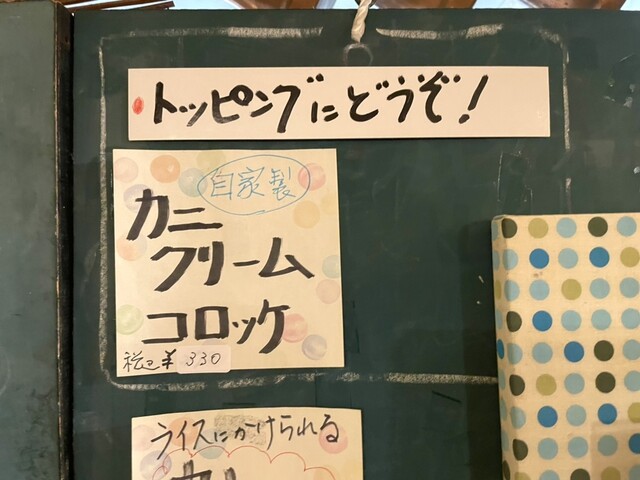 トッピングにどうぞ!
自家製
カニ
クリーム
コロッケ
税込¥330
ライスにかけられる